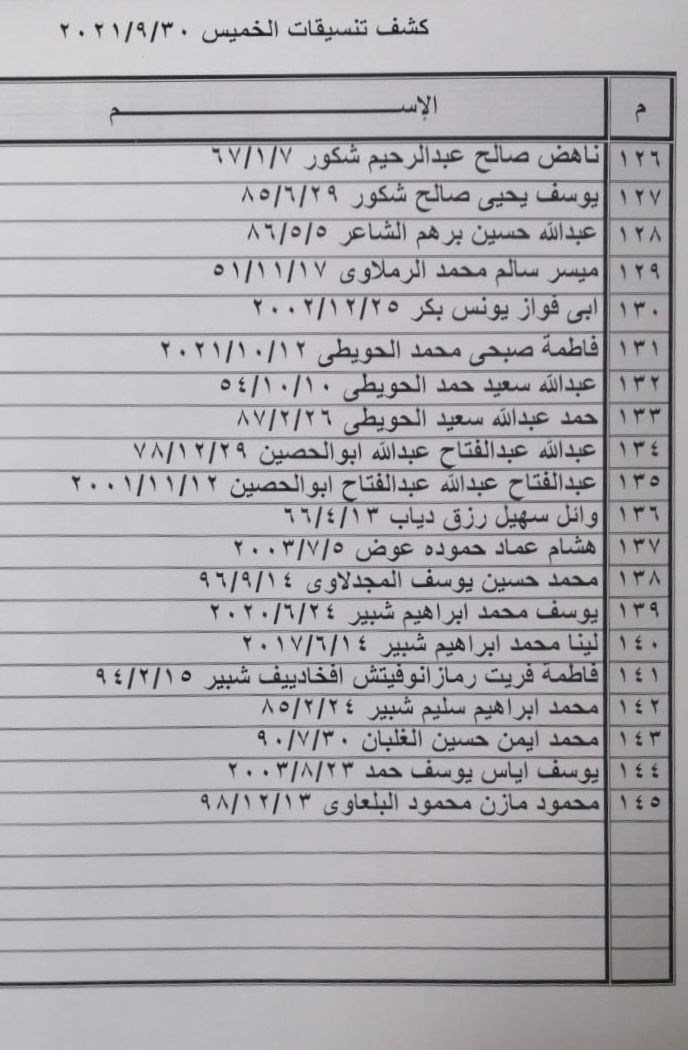 كشف تنسيقات الخميس ٢٠٢١/٩/٣٠
م الإســـــــــــــــــــــــم
١٢٦ ناهض صالح عبدالرحيم شكور ٦٧/١/٧
١٢٧ يوسف يحيى صالح شكور ٨٥/٦/٢٩
١٢٨ عبدالله حسين برهم الشاعر ٨٦/٥/٥
١٢٩ ميسر سالم محمد الرملاوى ٥١/١١/١٧
١٣٠ ابى فواز يونس بكر ٢٠٠٢/١٢/٢٥
١٣١ فاطمة صبحى محمد الحويطى ٢٠٢١/١٠/١٢
١٣٢ عبدالله سعيد حمد الحويطى ٥٤/١٠/١٠
١٣٣ حمد عبدالله سعيد الحويطى ٨٧/٢/٢٦
١٣٤ عبدالله عبدالفتاح عبدالله ابوالحصين ٧٨/١٢/٢٩
١٣٥ عبدالفتاح عبدالله عبدالفتاح ابوالحصين ٢٠٠١/١١/١٢
١٣٦ وائل سهيل رزق دياب ٦٦/٤/١٣
١٣٧ هشام عماد حموده عوض ٢٠٠٣/٧/٥
١٣٨ محمد حسين يوسف المجدلاوى ٩٦/٩/١٤
١٣٩ يوسف محمد ابراهيم شبير ٢٠٢٠/٦/٢٤
١٤٠ لينا محمد ابراهيم شبير ٢٠١٧/٦/١٤
١٤١ فاطمة فريت رمازانوفيتش افخادييف شبير ٩٤/٢/١٥
١٤٢ محمد ابراهيم سليم شبير ٨٥/٢/٢٤
١٤٣ محمد ايمن حسين الغلبان ٩٠/٧/٣٠
١٤٤ يوسف اياس يوسف حمد ٢٠٠٣/٨/٢٣
١٤٥ محمود مازن محمود البلعاوى ٩٨/١٢/١٣